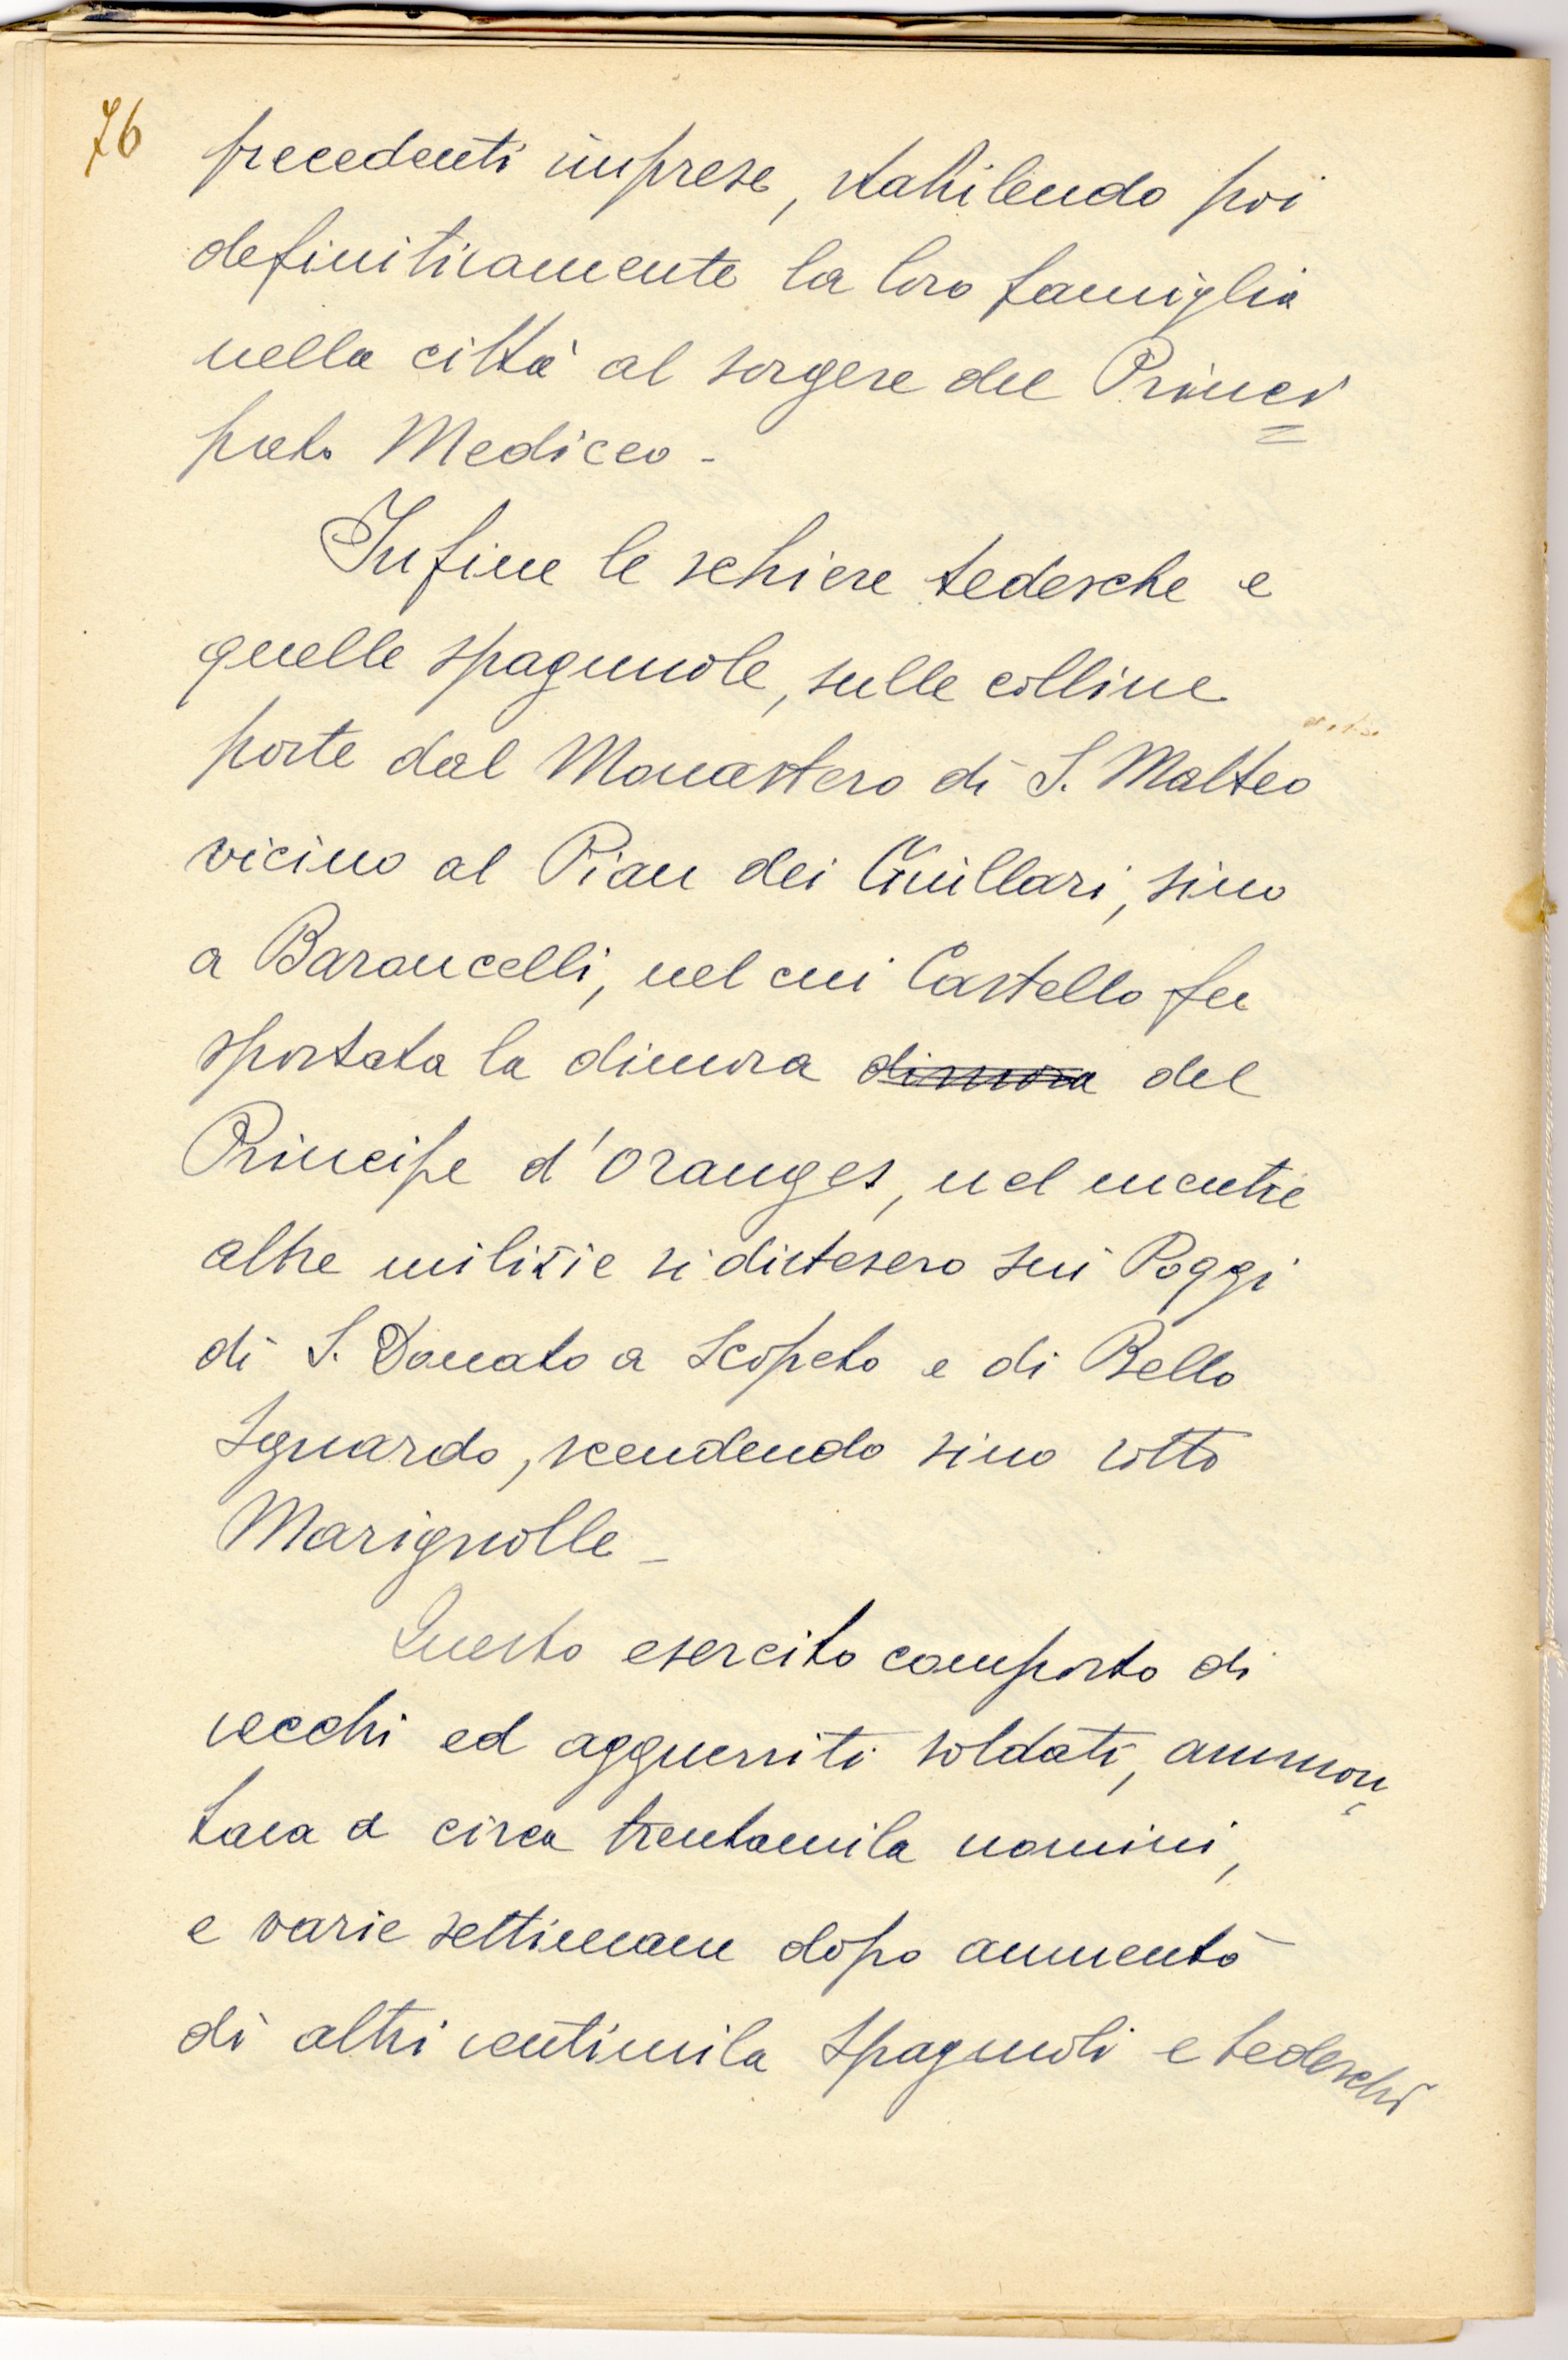 76
precedenti imprese, stabilendo poi
definitivamente la loro famiglia
nella città al sorgere del Princi
pato Mediceo -
Infine le schiere tedesche e
quelle spagnuole, sulle colline
poste dal Monastero di S. Matteo
vicino al Pian dei Giullari, sino
a Baroncelli, nel cui Castello fu
spostata la dimora dimora del
Principe d'Oranges, nel mentre
altre milizie si distesero sui Poggi
di S. Donato a Scopeto e di Bello
Sguardo, scendendo sino sotto
Marignolle -
Questo esercito composto di
vecchi ed agguerriti soldati, ammon
tava a circa trentamila uomini,
e varie settimane dopo aumentò
di altri ventimila spagnuoli e tedeschi